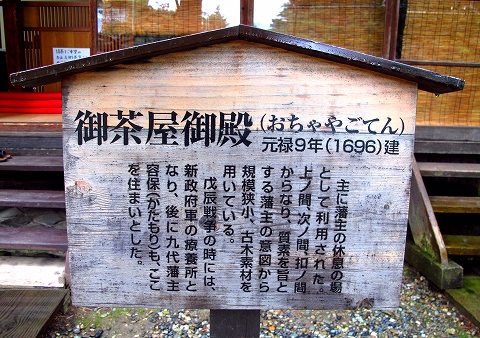 御茶屋御殿(おちゃやごてん)
元禄9年(1696)建
主に藩主の休息の場
として利用された。
上ノ間、次ノ間、扣ノ間
からなり、質素を旨と
する藩主の意図から
規模狭小、古木素材を
用いている。
戊辰戦争の時には、
新政府軍の療養所と
なり、後に九代藩主
容保(かたもり)も、ここ
を住まいとした。